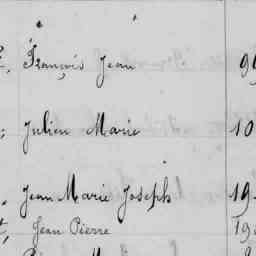 François Jean
Julien Marie 10
Jean Marie Joseph 19
Jean Pierre 19